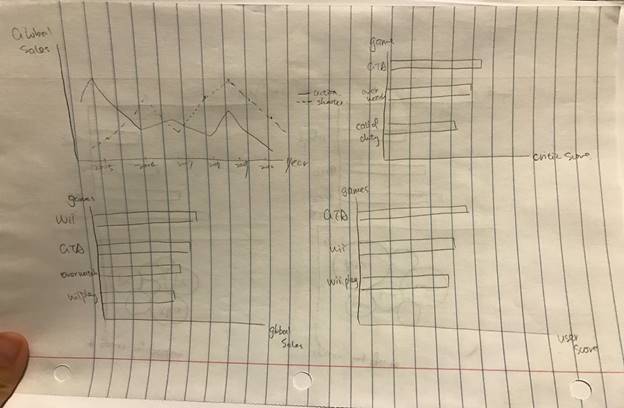 Global
Sales
action
shooter
2015
2016
2017
2018
2019
2020
Year
game
GTA
over
watch
call of
duty
critic score
games
Wii
GTA
overwatch
wii play
global
Sales
games
GTA
wii
wii play
user
score